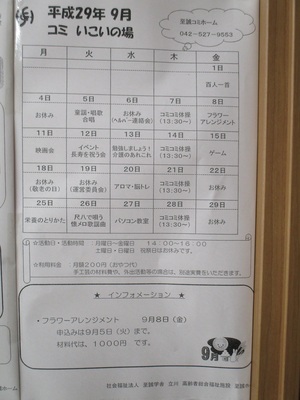 平成29年 9月
コミ いこいの場
至誠コミホーム
042-527-9553
月 火 水 木 金
1日
百人一首
4日 5日 6日 7日 8日
お休み 童謡・唱歌合唱 お休み(ヘルパー連絡会) コミコミ体操(13:30~) フラワーアレンジメント
11日 12日 13日 14日 15日
映画会 イベント 長寿を祝う会 勉強しましょう!介護のあれこれ コミコミ体操(13:30~) ゲーム
18日 19日 20日 21日 22日
お休み(敬老の日) お休み(運営委員会) アロマ・脳トレ コミコミ体操(13:30~) お休み
25日 26日 27日 28日 29日
栄養のとりかた 尺八で唄う懐メロ歌謡曲 パソコン教室 コミコミ体操(13:30~) お休み
☆活動日・活動時間 月曜日~金曜日 14:00~16:00
土曜日・日曜日 祝祭日はお休みです。
☆利用料金 月額200円(おやつ代)
手工芸の材料費や、外出活動等の場合は、別途実費をいただきます。
★ インフォメーション ★
・フラワーアレンジメント 9月8日(金)
申込みは9月5日(火)まで。
材料代は、1000円 です。
9月
社会福祉法人 至誠学舎 立川 高齢者総合福祉施設 至誠ホーム